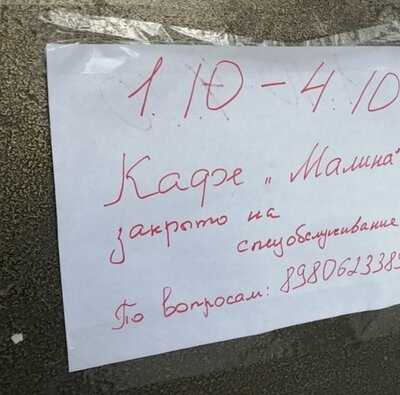 1.10-4.10
Кафе „Малина"
закрыто на
спецобслуживание
По вопросам: 8980623389